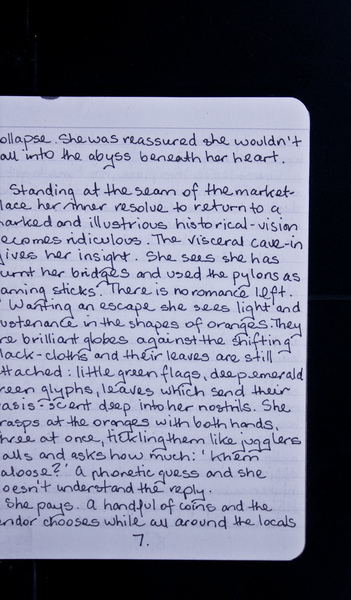 ollapse. She was reassured she wouldn't
all into the abyss beneath her heart.
Standing at the seam of the market-
lace her inner resolve to return to a
narked and illustrious historical-vision
ecomes ridiculous. The visceral cave-in
gives her insight. She sees she has
urnt her bridges and used the pylons as
aming sticks. There is no romance left.
Wanting an escape she sees light and
ustenance in the shapes of oranges. They
re brilliant globes against the shifting
lack-cloths and their leaves are still
ttached: little green flags, deep emerald
reen glyphs, leaves which send their
asis-scent deep into her nostrils. She
rasps at the oranges with both hands,
hree at once, tickling them like jugglers
alls and asks how much: 'Khem
aloose?' A phonetic guess and she
oesn't understand the reply.
She pays. A handful of coins and the
endor chooses while all around the locals
7.